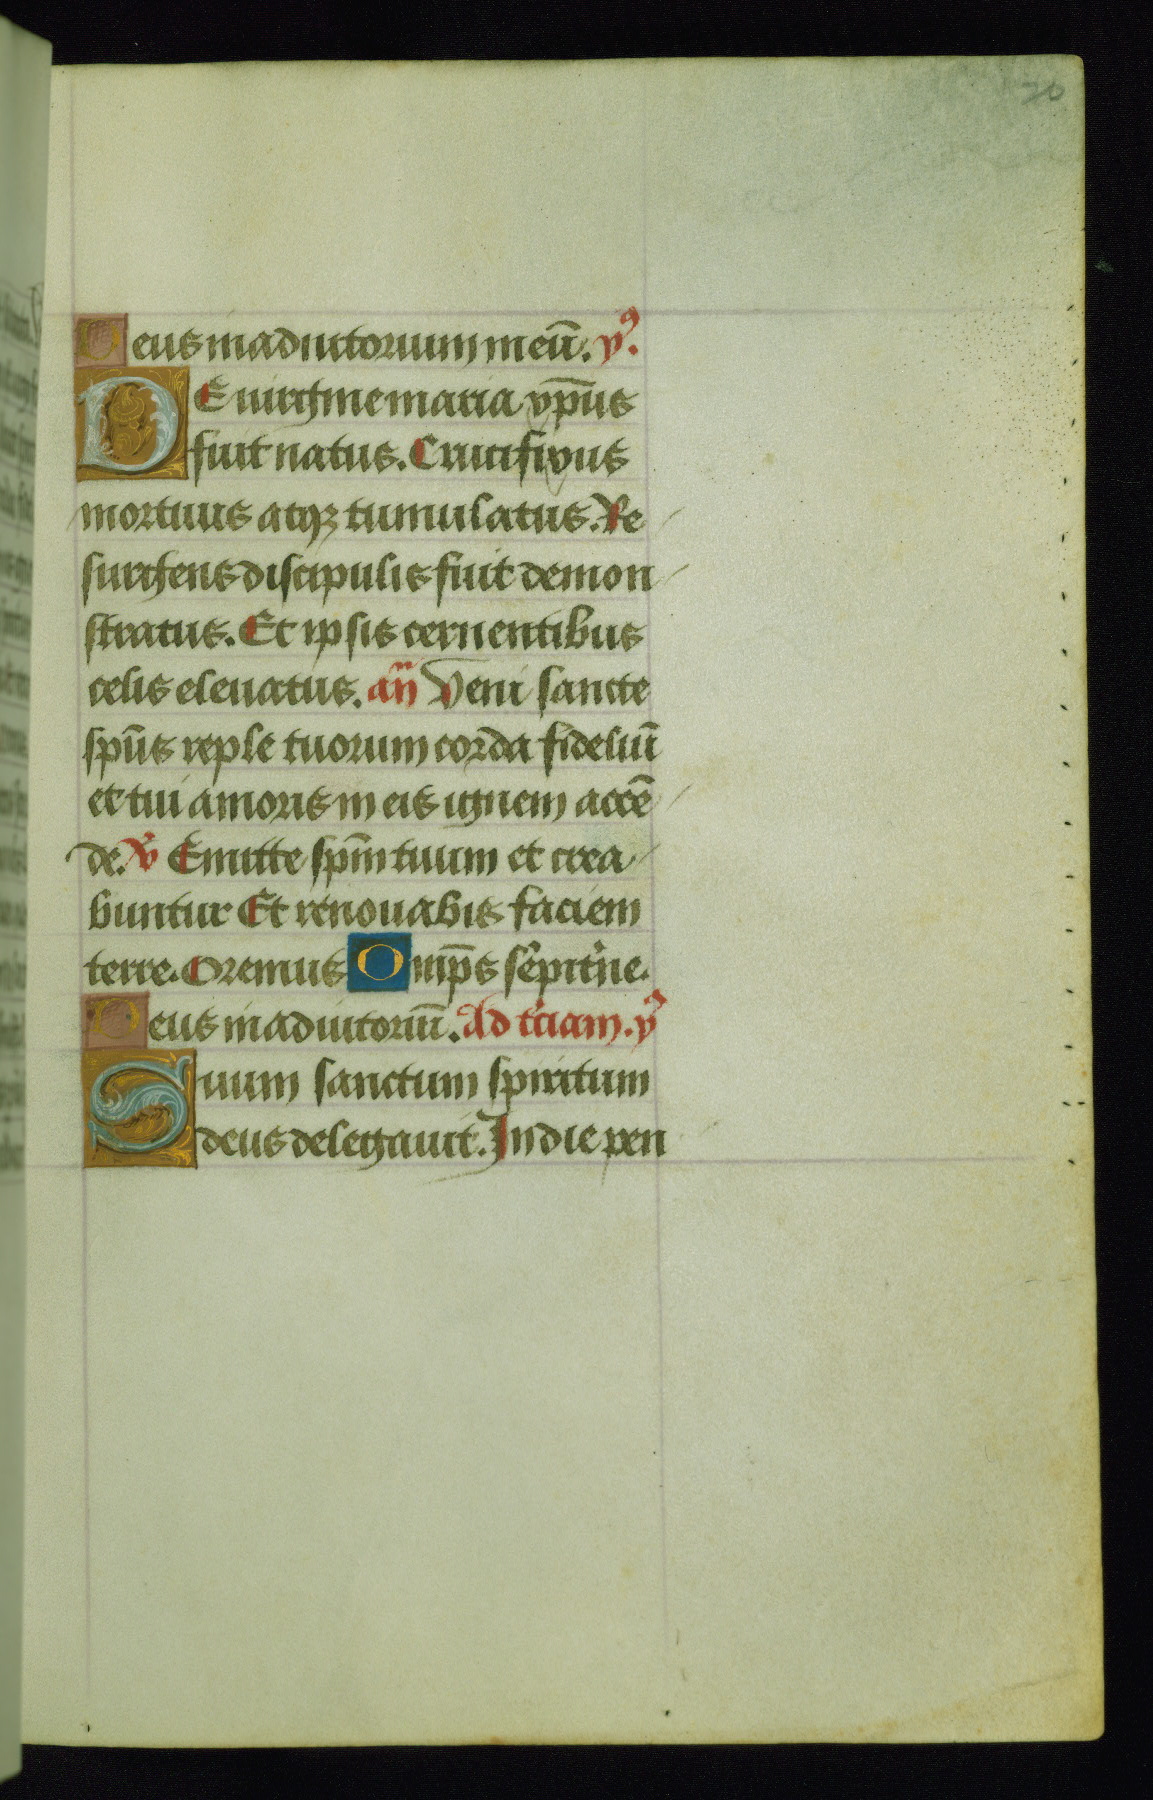 20
Deus in adiutorium meū. y⁹.
DE uirgine maria xp̄us
fuit natus. Crucifixus
mortuus atqꝫ tumulatus. Re
surgens discipulis fuit demon
stratus. Et ipsis cernentibus
celis eleuatus. an̄ Veni sancte
sp̄us reple tuorum corda fideliū
et tui amoris in eis ignem accē
de. v̾ Emitte sp̄m tuum et crea
buntur Et renouabis faciem
terre. Oremus Omp̄s sēpit̾ne.
Deus in adiutoriū. Ad t̾ciam. y⁹
Suum sanctum spiritum
deus delegauit. In die pen